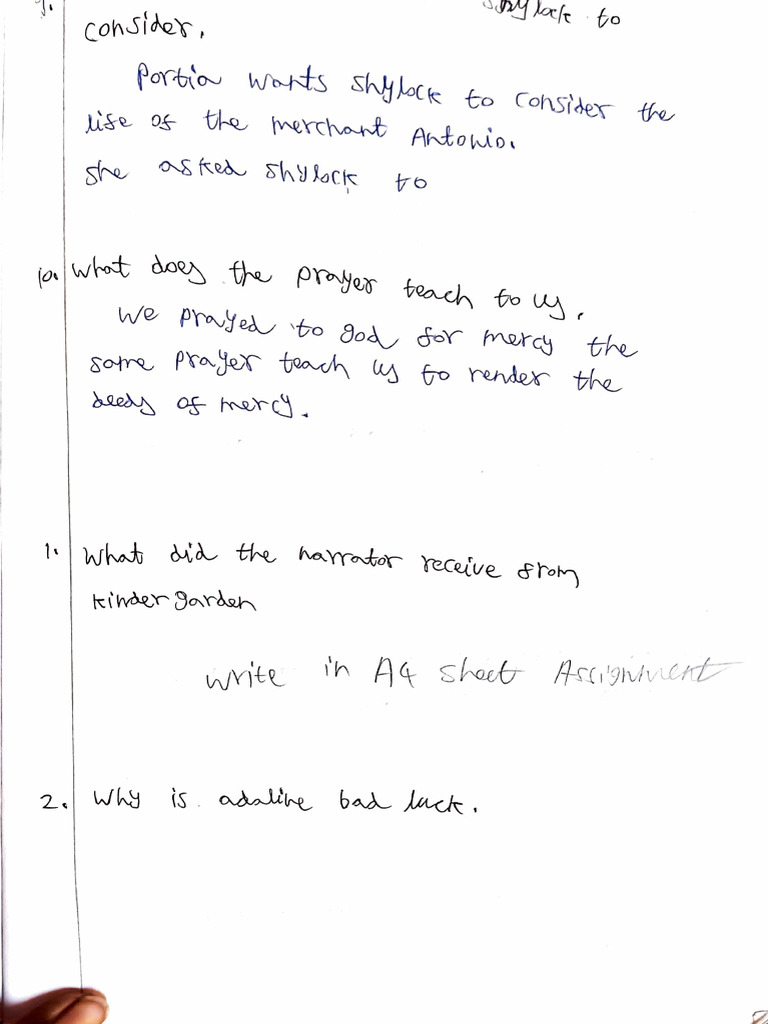 9.
shylock to
consider.
Portia wants shylock to consider the
life of the merchant Antonio.
she asked shylock to
10. What does the prayer teach to us.
We prayed to god for mercy the
same prayer teach us to render the
deeds of mercy.
1. What did the narrator receive from
kinder garden
write in A4 sheet Assignment
2. Why is adaline bad luck.